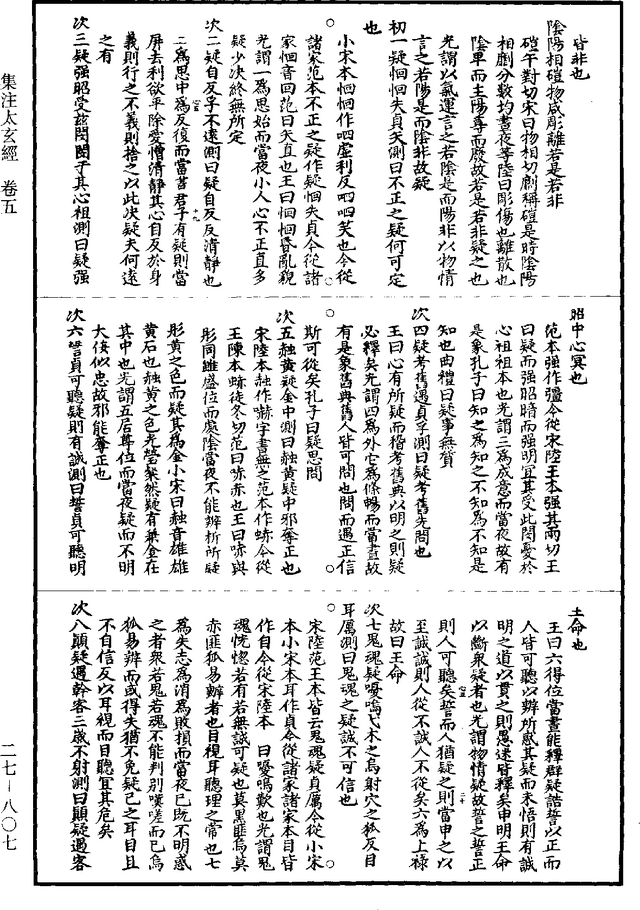 皆非也
陰陽相磑物咸彫離若是若非
磑午對切宋曰物相切劘稱磑是時陰陽
相劘分數均晝夜等陸曰彫傷也離散也
陰卑而主陽尊而廢故若是若非疑之也
光謂以氣運言之若陰是而陽非以物情
言之若陽是而陰非故疑
初一疑恛恛失貞矢測曰不正之疑何可定
也
小宋本恛恛作呬呬虛利反呬呬笑也今從
諸家范本不正之疑作疑恛失貞今從諸
家恛音回范曰矢直也王曰恛恛昏亂貌
光謂一為思始而當夜小人心不正直多
疑少決終無所定
次二疑自反孚不遠測曰疑自反反清靜也
二為思中為反復而當晝君子有疑則當
屏去利欲平除愛憎清靜其心自反於身
義則行之不義則捨之以此决疑夫何遠
之有
次三疑强昭受茲閔閔于其心祖測曰疑强
昭中心冥也
范本强作彊今從宋陸王本强其兩切王
曰疑而强昭暗而强明宜其受此閔憂於
心祖祖本也光謂三為成意而當夜故有
是象孔子曰知之為知之不知為不知是
知也曲禮曰疑事無質
次四疑考舊遇貞孚測曰疑考舊先問也
王曰心有所疑而稽考舊典以明之則疑
必釋矣光謂四為外它為條暢而當晝故
有是象舊典舊人皆可問也問而遇正信
斯可從矣孔子曰疑思問
次五𧹞黃疑金中測曰𧹞黃疑中邪奪正也
宋陸本𧹞作嚇字書無之范本作䖳今從
王陳本䖳徒冬切范曰䖳赤也王曰䖳與
彤同雖盛位而處陰當夜不能辨析所疑
彤黃之色而疑其為金小宋曰𧹞音雄雄
黃石也𧹞黃之色光瑩粲然疑有兼金在
其中也光謂五居尊位而當夜疑而不明
大佞似忠故邪能奪正也
次六誓貞可聽疑則有誠測曰誓貞可聽明
王命也
王曰六得位當晝能釋群疑誥誓以正而
人皆可聽以辨所惑其疑而未悟則有誠
明之道以貫之則愚遠皆釋矣申明王命
以斷衆疑者也光謂物情疑故誓之誓正
則人可聽矣誓而人猶疑之則當申之以
至誠誠則人從不誠人不從矣六為上祿
故曰王命
次七鬼魂疑嚘鳴弋木之烏射穴之狐反目
耳厲測曰鬼魂之疑誠不可信也
宋陸范王本皆云鬼魂疑貞厲今從小宋
本小宋本耳作貞今從諸家諸家本目皆
作自今從宋陸本 曰嚘鳴歎也光謂鬼
魂恍惚若有若無誠可疑也莫黑匪烏莫
赤匪狐易辨者也目視耳聽理之常也七
為失志為消為敗損而當夜已既不明惑
之者衆若鬼若魂不能判別嘆嗟而已烏
狐易辨而或得失猶不免疑己之耳目且
不自信反以耳視而目聽宜其危矣
次八顛疑遇幹客三歲不射測曰顛疑遇客
集注太玄經 卷五
二七—八〇七